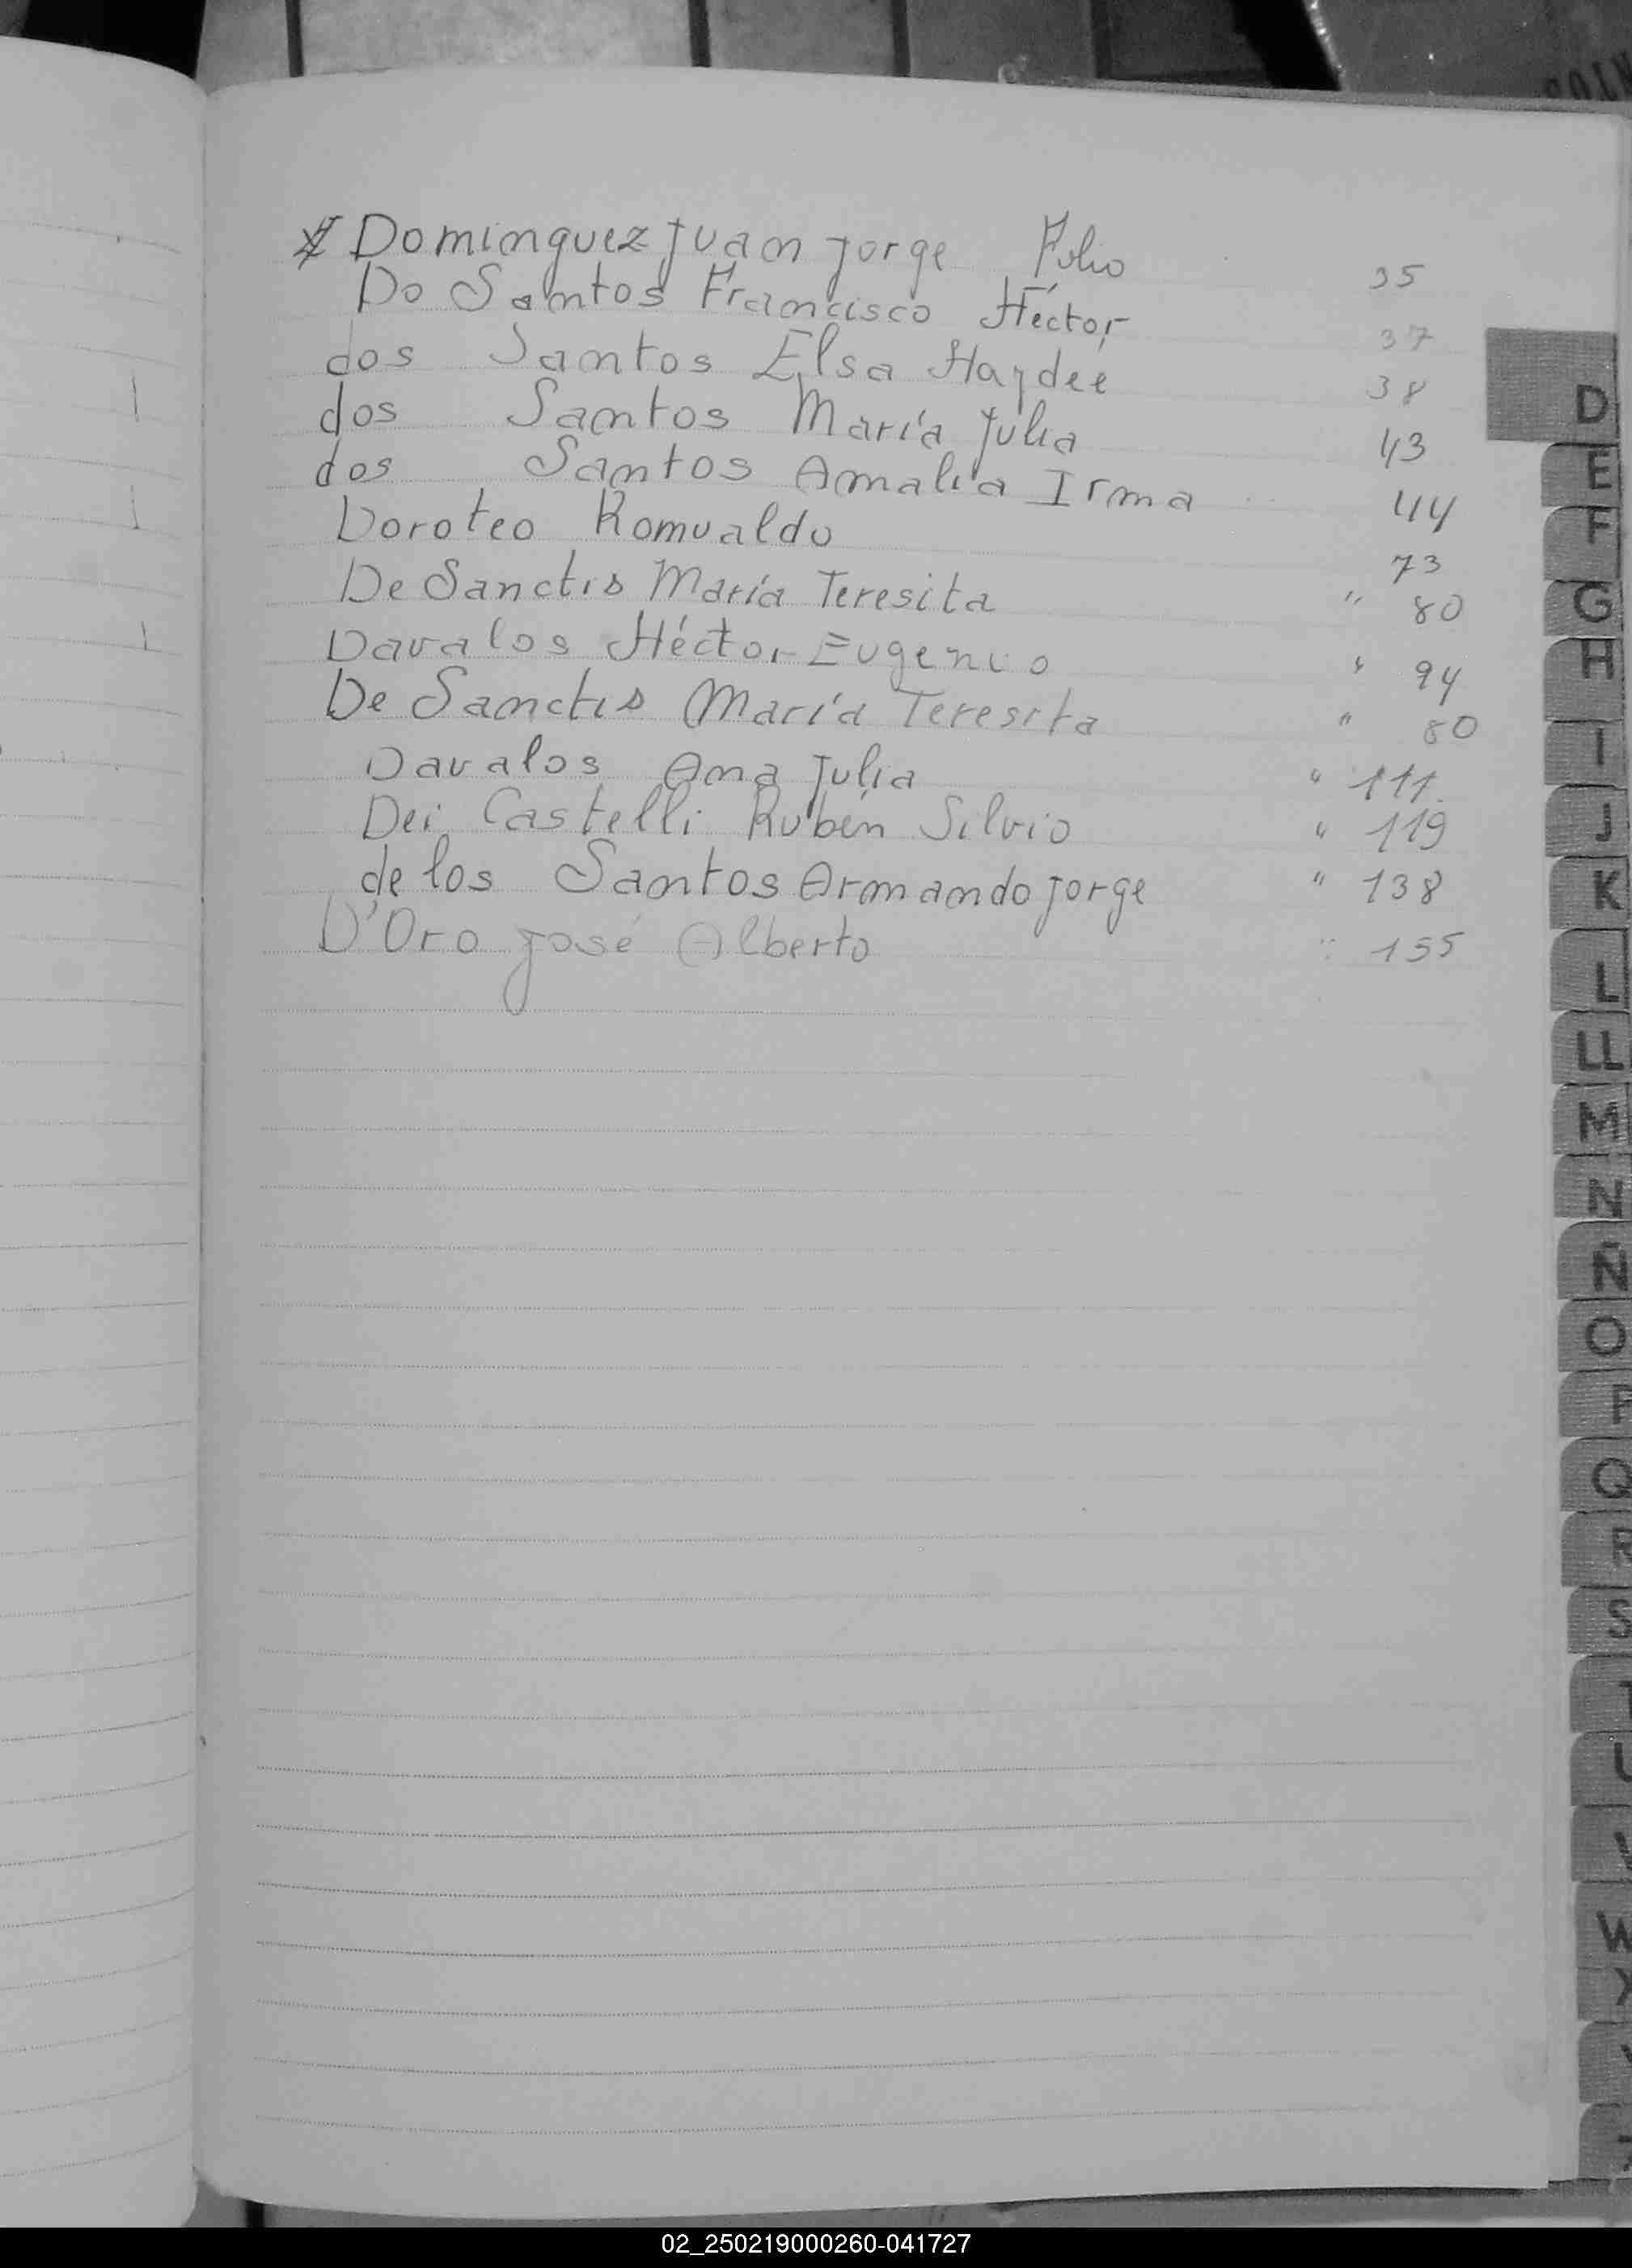 Dominguez Juan Jorge Folio 35
Do Santos Francisco Héctor 37
dos Santos Elsa Haydée 38
dos Santos María Julia 43
dos Santos Amalia Irma 44
Doroteo Romualdo 73
De Sanctis María Teresita " 80
Davalos Héctor Eugenio " 94
De Sanctis María Teresita " 80
Davalos Ana Julia " 111
Dei Castelli Rubén Silvio " 119
de los Santos Armando Jorge " 138
D'Oro José Alberto " 155
D
E
F
G
H
I
J
K
L
LL
M
N
Ñ
O
P
Q
R
S
T
U
V
W
X
02_250219000260-041727